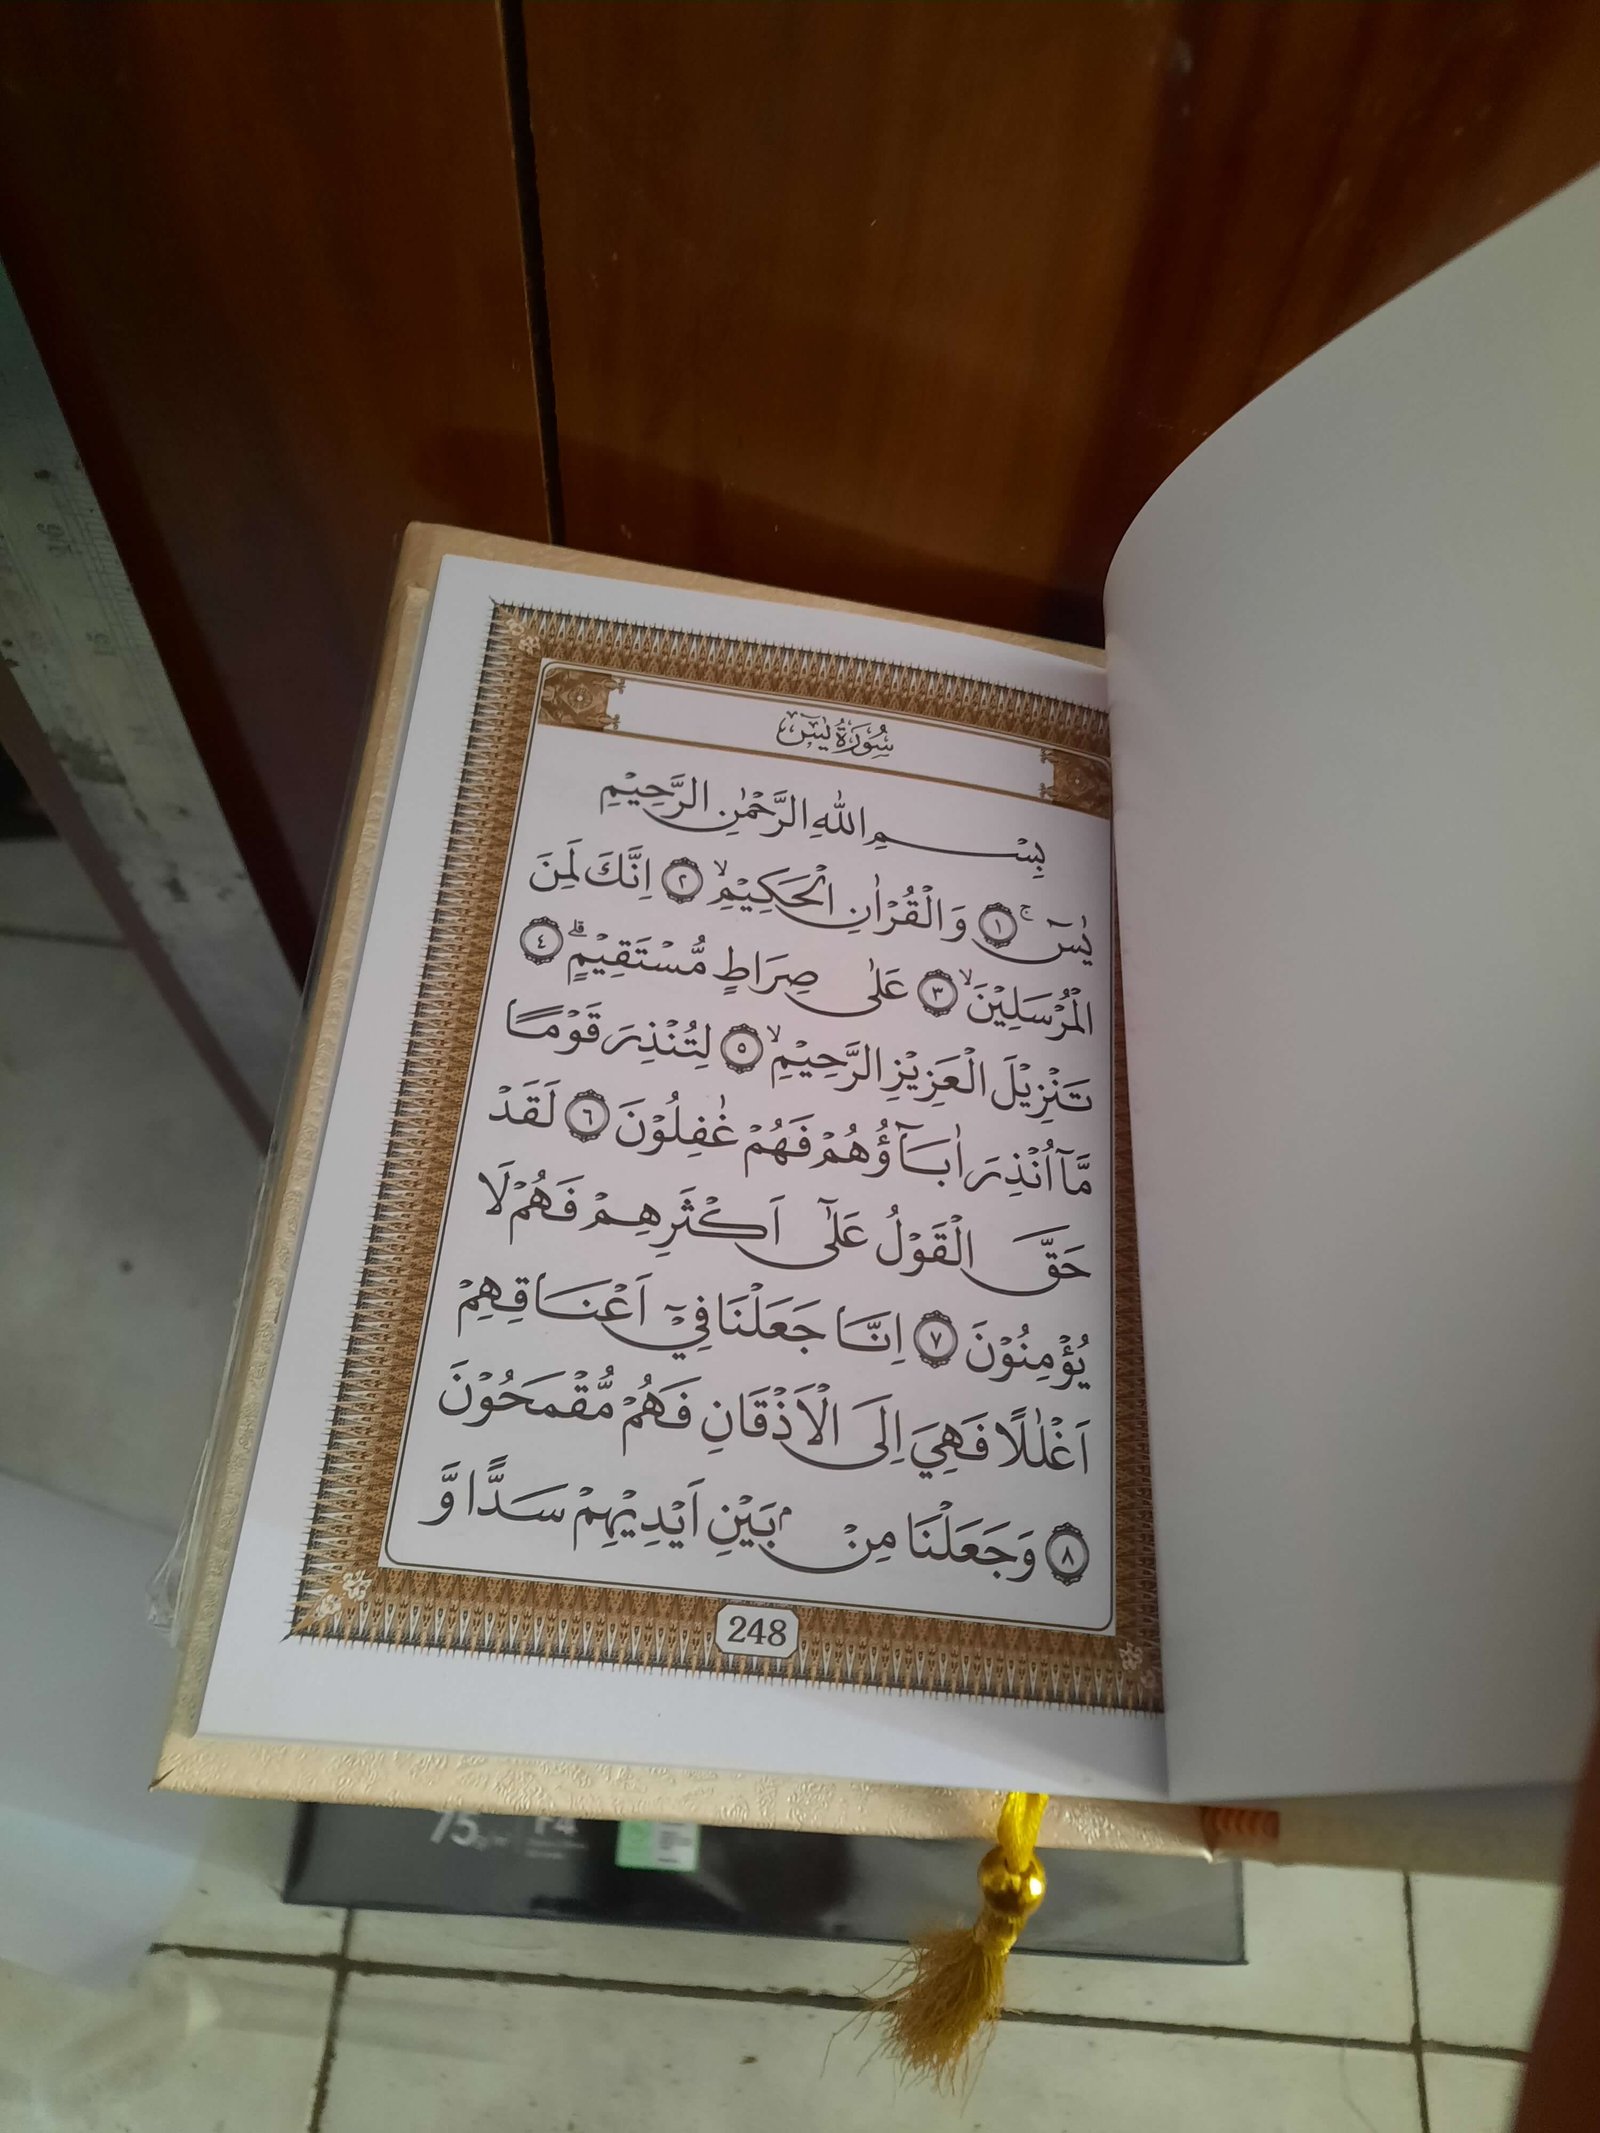 سُوْرَةُ يٰسٓ
بِسْمِ اللّٰهِ الرَّحْمٰنِ الرَّحِيْمِ
يٰسٓ ۚ ١ وَالْقُرْاٰنِ الْحَكِيْمِۙ ٢ اِنَّكَ لَمِنَ
الْمُرْسَلِيْنَۙ ٣ عَلٰى صِرَاطٍ مُّسْتَقِيْمٍۗ ٤
تَنْزِيْلَ الْعَزِيْزِ الرَّحِيْمِۙ ٥ لِتُنْذِرَ قَوْمًا
مَّآ اُنْذِرَ اٰبَاۤؤُهُمْ فَهُمْ غٰفِلُوْنَ ٦ لَقَدْ
حَقَّ الْقَوْلُ عَلٰٓى اَكْثَرِهِمْ فَهُمْ لَا
يُؤْمِنُوْنَ ٧ اِنَّا جَعَلْنَا فِيْٓ اَعْنَاقِهِمْ
اَغْلٰلًا فَهِيَ اِلَى الْاَذْقَانِ فَهُمْ مُّقْمَحُوْنَ
٨ وَجَعَلْنَا مِنْۢ بَيْنِ اَيْدِيْهِمْ سَدًّا وَّ
248
75 F4